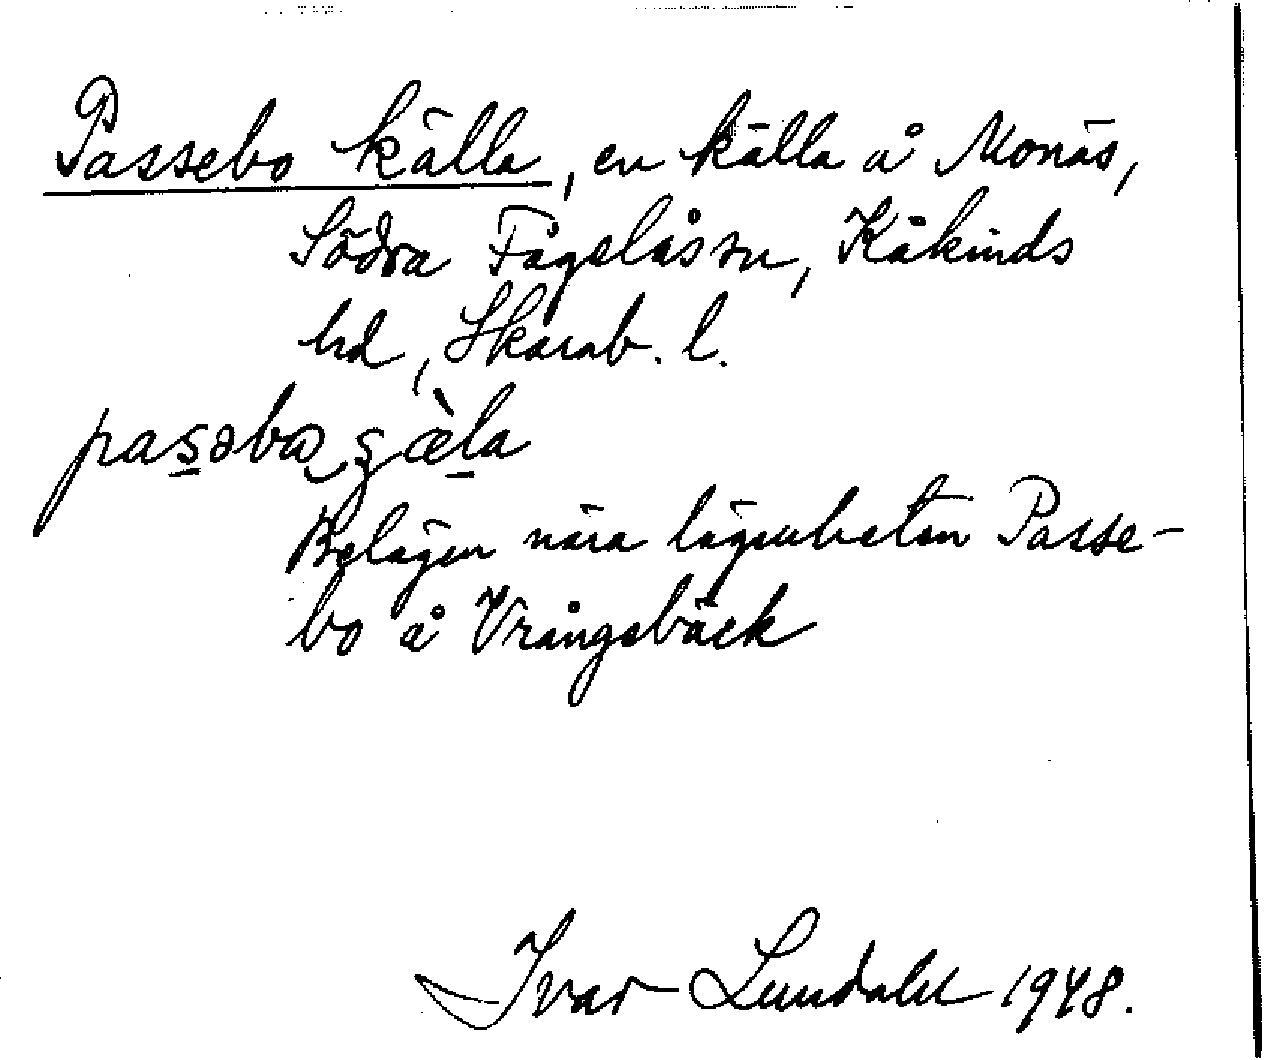 Passebo källa, en källa å Monäs,
Södra Fågelåsen, Kåkinds
hd, Skarab. l.
Belägen nära lägenheten Passe-
bo å Vrångsbäck
Ivar Lundahl 1948.